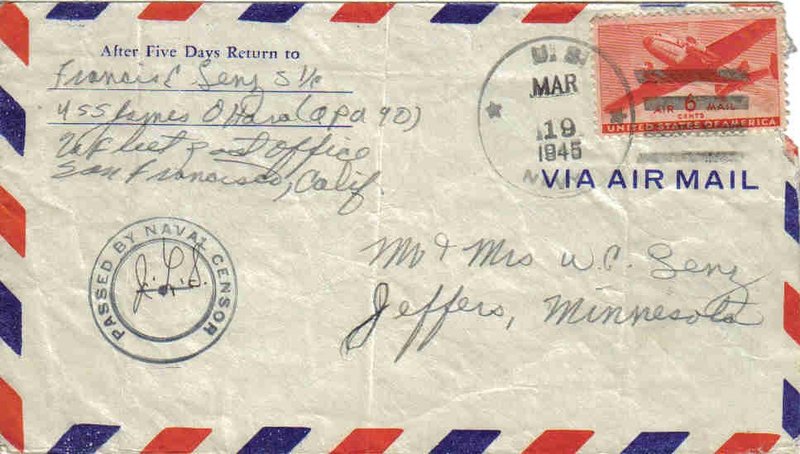 After Five Days Return to
Francis C Senz S 1/c
USS James O'Hara (APA 90)
℅ Fleet Post Office
San Francisco, Calif.
U. S.
MAR
19
1945
AIR 6 MAIL
CENTS
UNITED STATES OF AMERICA
VIA AIR MAIL
PASSED BY NAVAL CENSOR
Mr & Mrs W. C. Senz
Jeffers, Minnesota